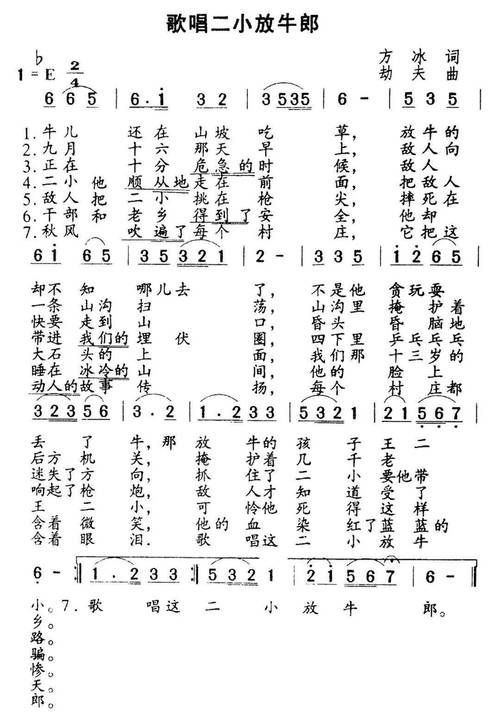 歌唱二小放牛郎
1=♭E 2/4
方冰 词
劫夫 曲
6 6 5 | 6· 1 3 2 | 3 5 3 5 | 6 - | 5 3 5 |
1.牛儿 还在山坡吃草,放牛的
2.九月 十六那天早上,敌人向
3.正在 十分危急的时候,敌人
4.二小他 顺从地走在前面,把敌人
5.敌人把 二小挑在枪尖,摔死在
6.干部和 老乡得到了安全,他却
7.秋风 吹遍了每个村庄,它把这
6 1 6 5 | 3 5 3 2 1 | 2 - | 3 3 5 | 1 2 6 5 |
却不知哪儿去了,不是他贪玩耍
一条山沟扫荡,山沟里掩护着
快要走到山口,昏头昏脑地
带进我们的埋伏圈,四下里乒乓乒乓的
大石头的上面,我们那十三岁的
睡在冰冷的山间,他的脸上
动人的故事传扬,每个村庄都
3 2 3 5 6 | 3· 2 | 1· 2 3 3 | 5 3 2 1 | 2 1 5 6 7 |
丢了牛,那放牛的孩子王二
后方机关,掩护着几千老
迷失了方向,抓住了二小要他带
响起了枪炮,敌人才知道受了
王二小,可怜他死得这样
含着微笑,他的血染红了蓝蓝的
含着眼泪.歌唱这二小放牛
6 - :‖ 1· 2 3 3 | 5 3 2 1 | 2 1 5 6 7 | 6 - ‖
小。7.歌唱这二小放牛郎。
乡。
路。
骗。
惨。
天。
郎。